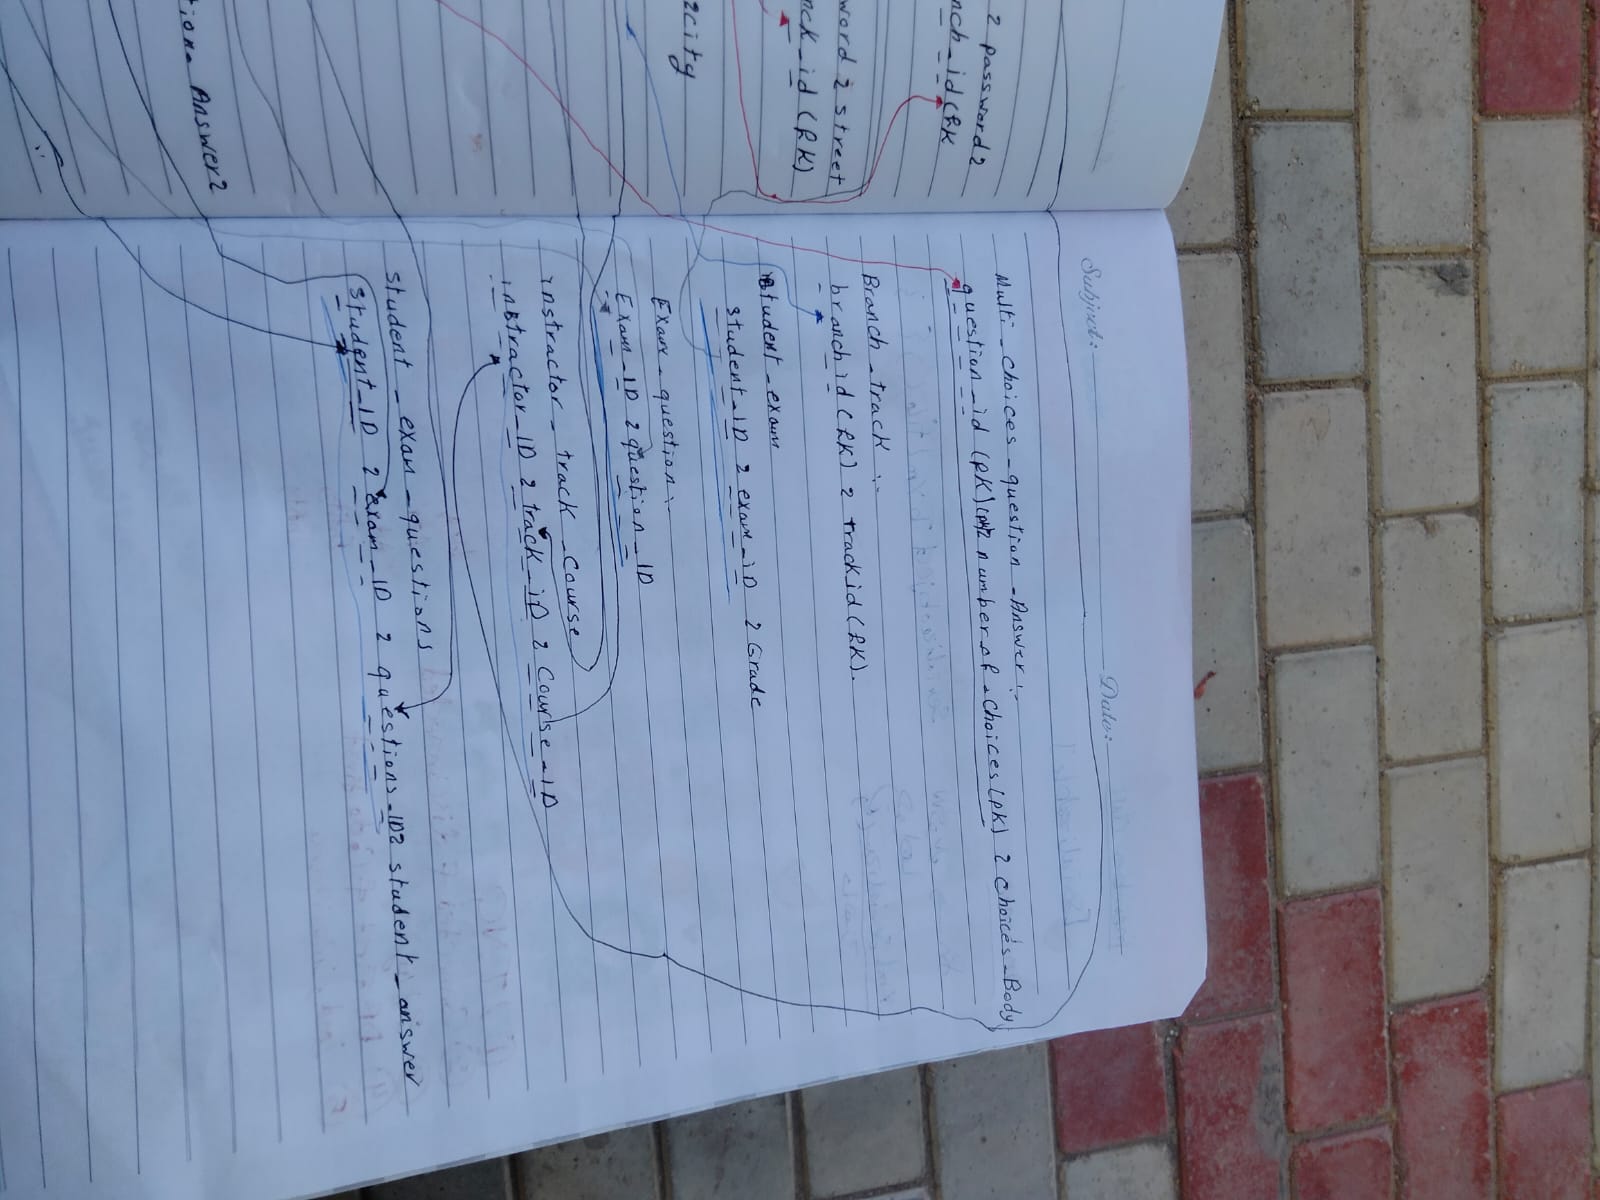 2 password2
nch_id(FK
word 2 street
nck_id (FK)
2city
tions Answer2
Subject:
Date:
Multi_choices_question_Answer:-
question_id (FK)(PK)2 number_of_choices(PK) 2 choices_Body
Branch_track :-
branchid (FK) 2 trackid (FK).
student_exam
student_ID 2 exam_iD 2 Grade
Exam_question:-
Exam_ID 2 question_ID
instractor_track_Course
instractor_ID 2 track_iD 2 Course_ID
student_exam_questions
student_ID 2 exam_ID 2 questions_ID2 student_answer